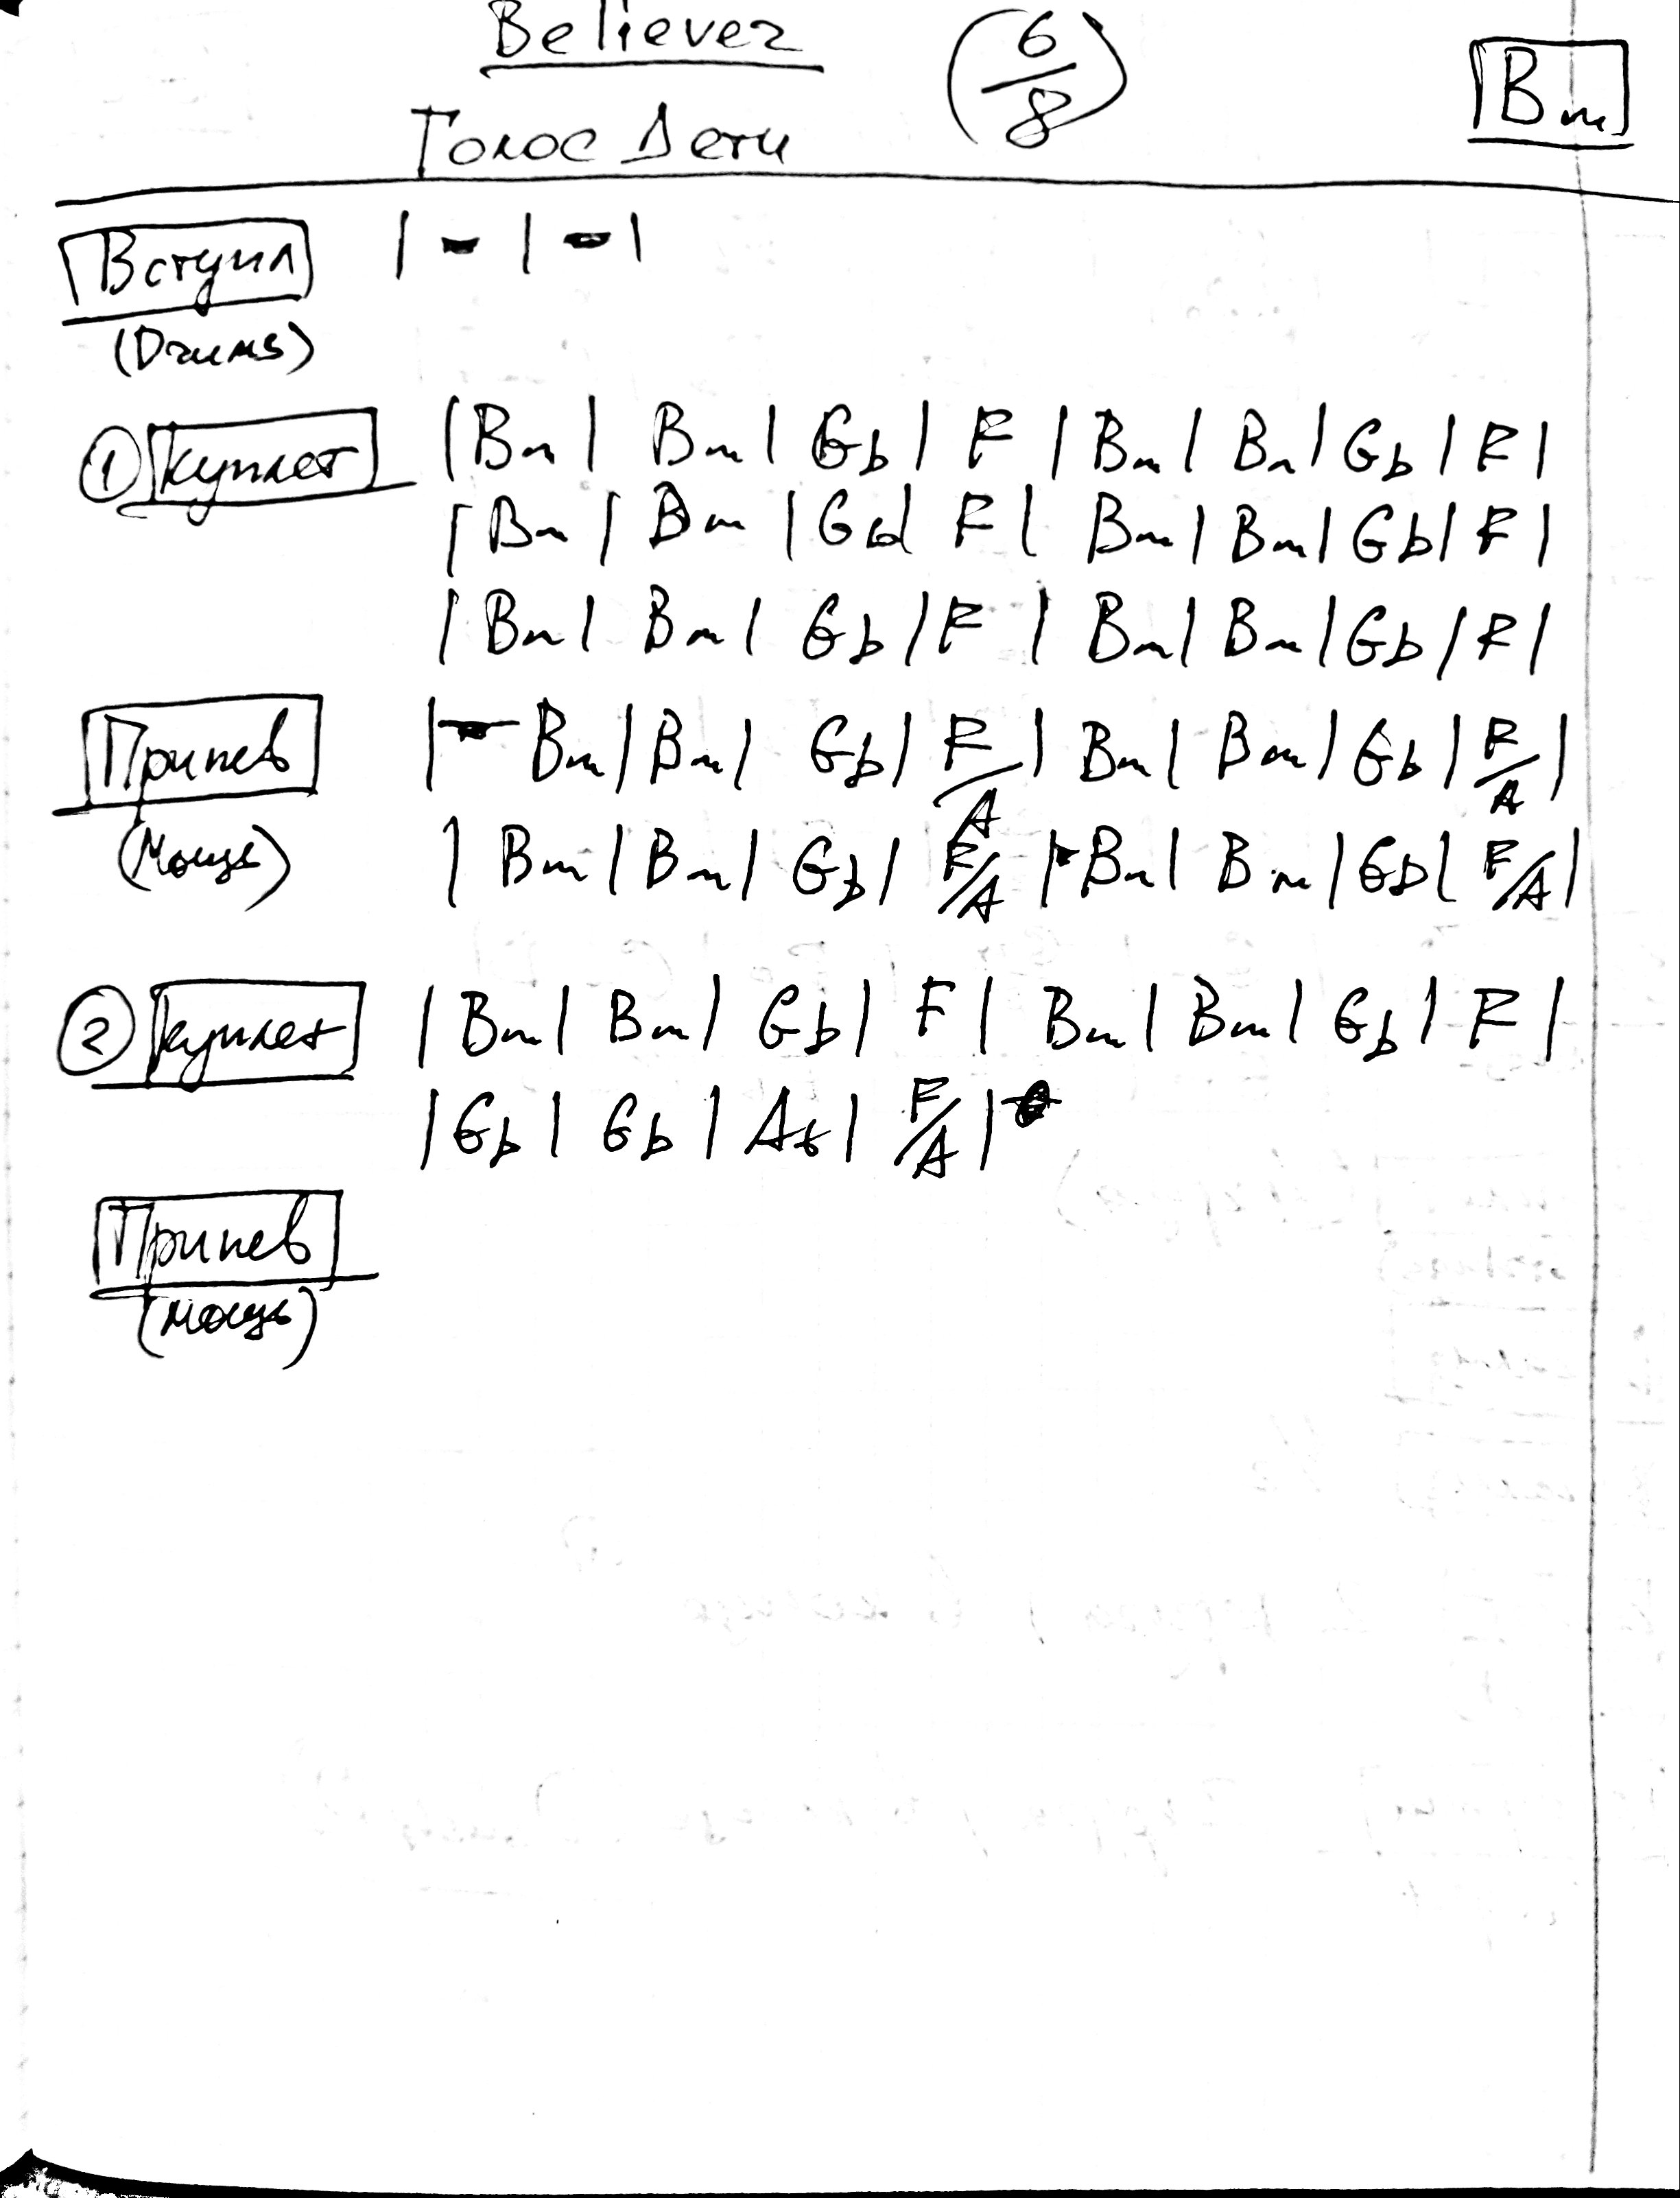 Believer
Голос Дети
(6/8)
Bm
Вступл | - | - |
(Drums)
① Куплет | Bm | Bm | Gb | F | Bm | Bm | Gb | F |
| Bm | Bm | Gb | F | Bm | Bm | Gb | F |
| Bm | Bm | Gb | F | Bm | Bm | Gb | F |
Припев | Bm | Bm | Gb | F/A | Bm | Bm | Gb | F/A |
(Мощь) | Bm | Bm | Gb | F/A | Bm | Bm | Gb | F/A |
② Куплет | Bm | Bm | Gb | F | Bm | Bm | Gb | F |
| Gb | Gb | Ab | F/A |
Припев
(мощь)